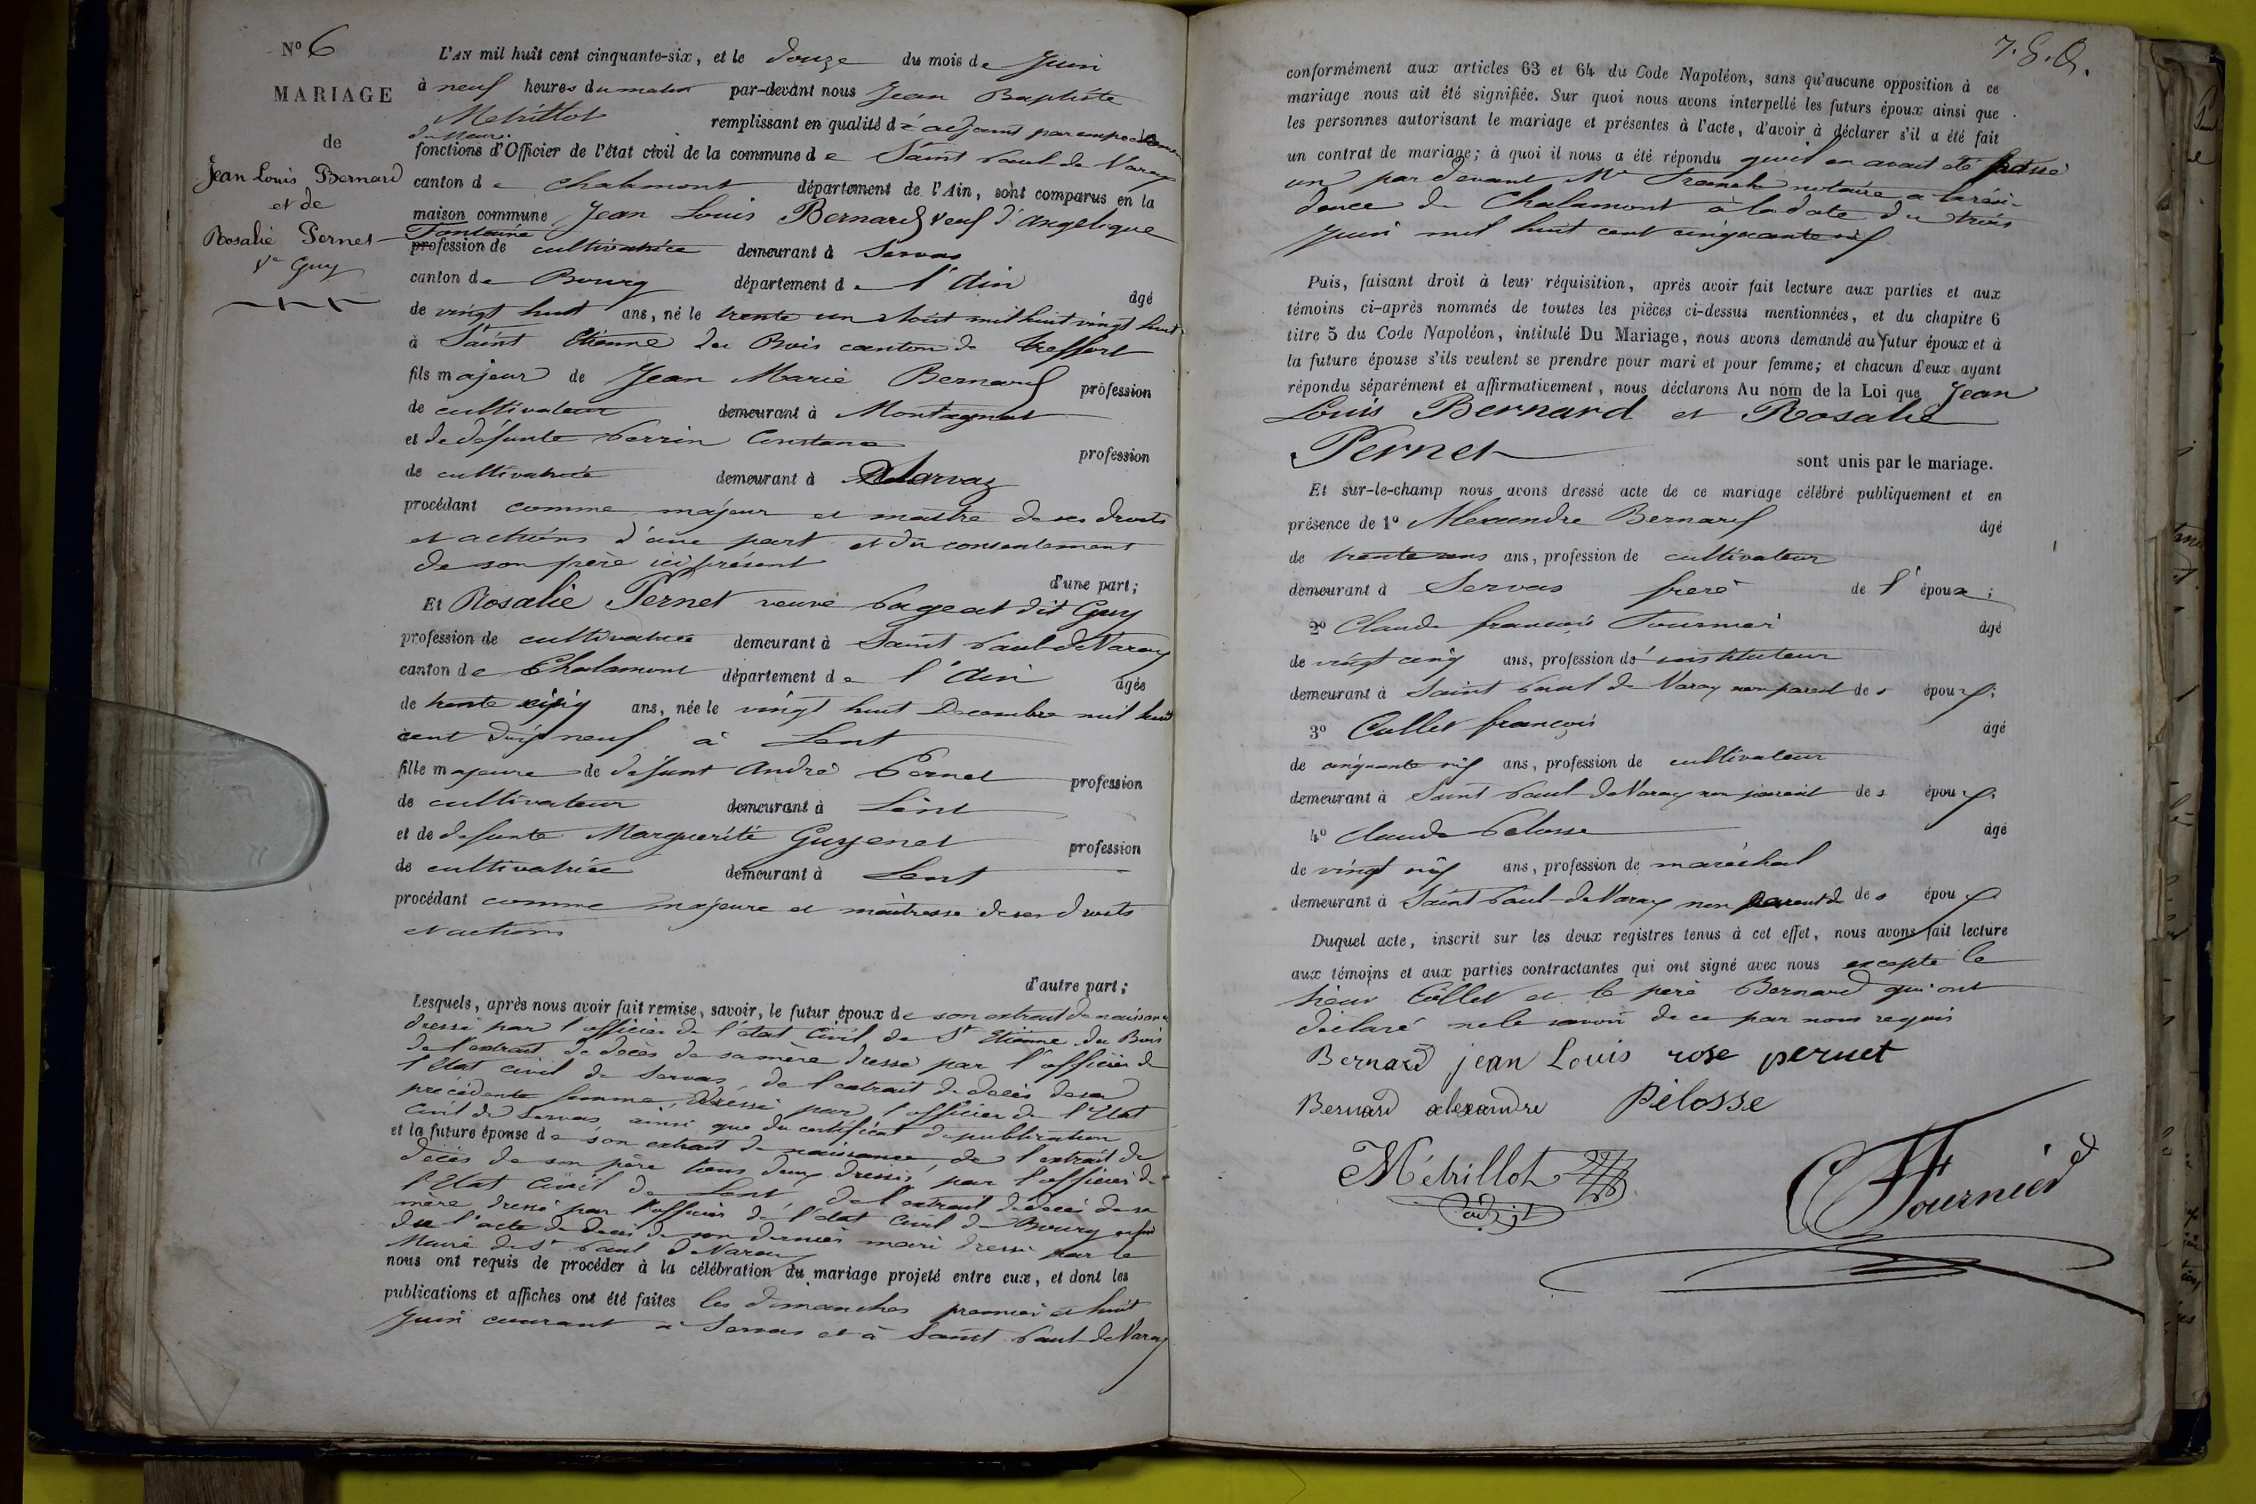 N° 6
MARIAGE
de
Jean Louis Bernard
et de
Rosalie Pernet
Ve Guy
L'AN mil huit cent cinquante-six, et le douze du mois de Juin
à neuf heures du matin par-devant nous Jean Baptiste
Métrillot remplissant en qualité d'adjoint par empêchement
du Maire
fonctions d'Officier de l'état civil de la commune de Saint Paul de Varax
canton de Chalamont département de l'Ain, sont comparus en la
maison commune Jean Louis Bernard veuf d'Angélique
Fontaine
profession de cultivatrice demeurant à Servas
canton de Bourg département de l'Ain âgé
de vingt huit ans, né le trente un Août mil huit vingt huit
à Saint Etienne du Bois canton de Treffort
fils majeur de Jean Marie Bernard profession
de cultivateur demeurant à Montagnat
et de défunte Perrin Constance profession
de cultivatrice demeurant à Servas
procédant comme majeur et maître de ses droits
et actions d'une part et du consentement
de son père ici présent
d'une part;
Et Rosalie Pernet veuve Pageat dit Guy
profession de cultivatrice demeurant à Saint Paul de Varax
canton de Chalamont département de l'Ain âgée
de trente ans, née le vingt huit Décembre mil huit
cent dix neuf à Lent
fille majeure de défunt André Pernet profession
de cultivateur demeurant à Lent
et de défunte Marguerite Guyenet profession
de cultivatrice demeurant à Lent
procédant comme majeure et maîtresse de ses droits
et actions
d'autre part;
Lesquels, après nous avoir fait remise, savoir, le futur époux de son extrait de naissance
dressé par l'officier de l'état civil de St Etienne du Bois
de l'extrait de décès de sa mère dressé par l'officier de
l'Etat civil de Servas, de l'extrait de décès de sa
précédente femme, dressé par l'officier de l'Etat
civil de Servas, ainsi que du certificat de publication
et la future épouse de son extrait de naissance, de l'extrait de
décès de son père tous deux dressés par l'officier de
l'Etat civil de Lent, de l'extrait de décès de sa
mère dressé par l'officier de l'état civil de Bourg enfin
de l'acte de décès de son dernier mari dressé par le
Maire de St Paul de Varax
nous ont requis de procéder à la célébration du mariage projeté entre eux, et dont les
publications et affiches ont été faites les dimanches premier et huit
Juin courant à Servas et à Saint Paul de Varax
conformément aux articles 63 et 64 du Code Napoléon, sans qu'aucune opposition à ce
mariage nous ait été signifiée. Sur quoi nous avons interpellé les futurs époux ainsi que
les personnes autorisant le mariage et présentes à l'acte, d'avoir à déclarer s'il a été fait
un contrat de mariage; à quoi il nous a été répondu qu'il en avait été passé
un par devant Me notaire à la rési-
dence de Chalamont à la date du trois
Juin mil huit cent cinquante six
Puis, faisant droit à leur réquisition, après avoir fait lecture aux parties et aux
témoins ci-après nommés de toutes les pièces ci-dessus mentionnées, et du chapitre 6
titre 5 du Code Napoléon, intitulé Du Mariage, nous avons demandé au futur époux et à
la future épouse s'ils veulent se prendre pour mari et pour femme; et chacun d'eux ayant
répondu séparément et affirmativement, nous déclarons Au nom de la Loi que Jean
Louis Bernard et Rosalie
Pernet sont unis par le mariage.
Et sur-le-champ nous avons dressé acte de ce mariage célébré publiquement et en
présence de 1° Alexandre Bernard âgé
de trente ans, profession de cultivateur
demeurant à Servas frère de l'époux;
2° Claude françois Fournier âgé
de vingt cinq ans, profession d'instituteur
demeurant à Saint Paul de Varax non parent des époux;
3° Collet françois âgé
de cinquante six ans, profession de cultivateur
demeurant à Saint Paul de Varax non parent des époux;
4° Claude Pelosse âgé
de vingt six ans, profession de maréchal
demeurant à Saint Paul de Varax non parent de des époux
Duquel acte, inscrit sur les deux registres tenus à cet effet, nous avons fait lecture
aux témoins et aux parties contractantes qui ont signé avec nous excepté le
sieur Collet et le père Bernard qui ont
déclaré ne le savoir de ce par nous requis
Bernard jean Louis rose pernet
Bernard alexandre Pélosse
Métrillot
adjt
Fournier